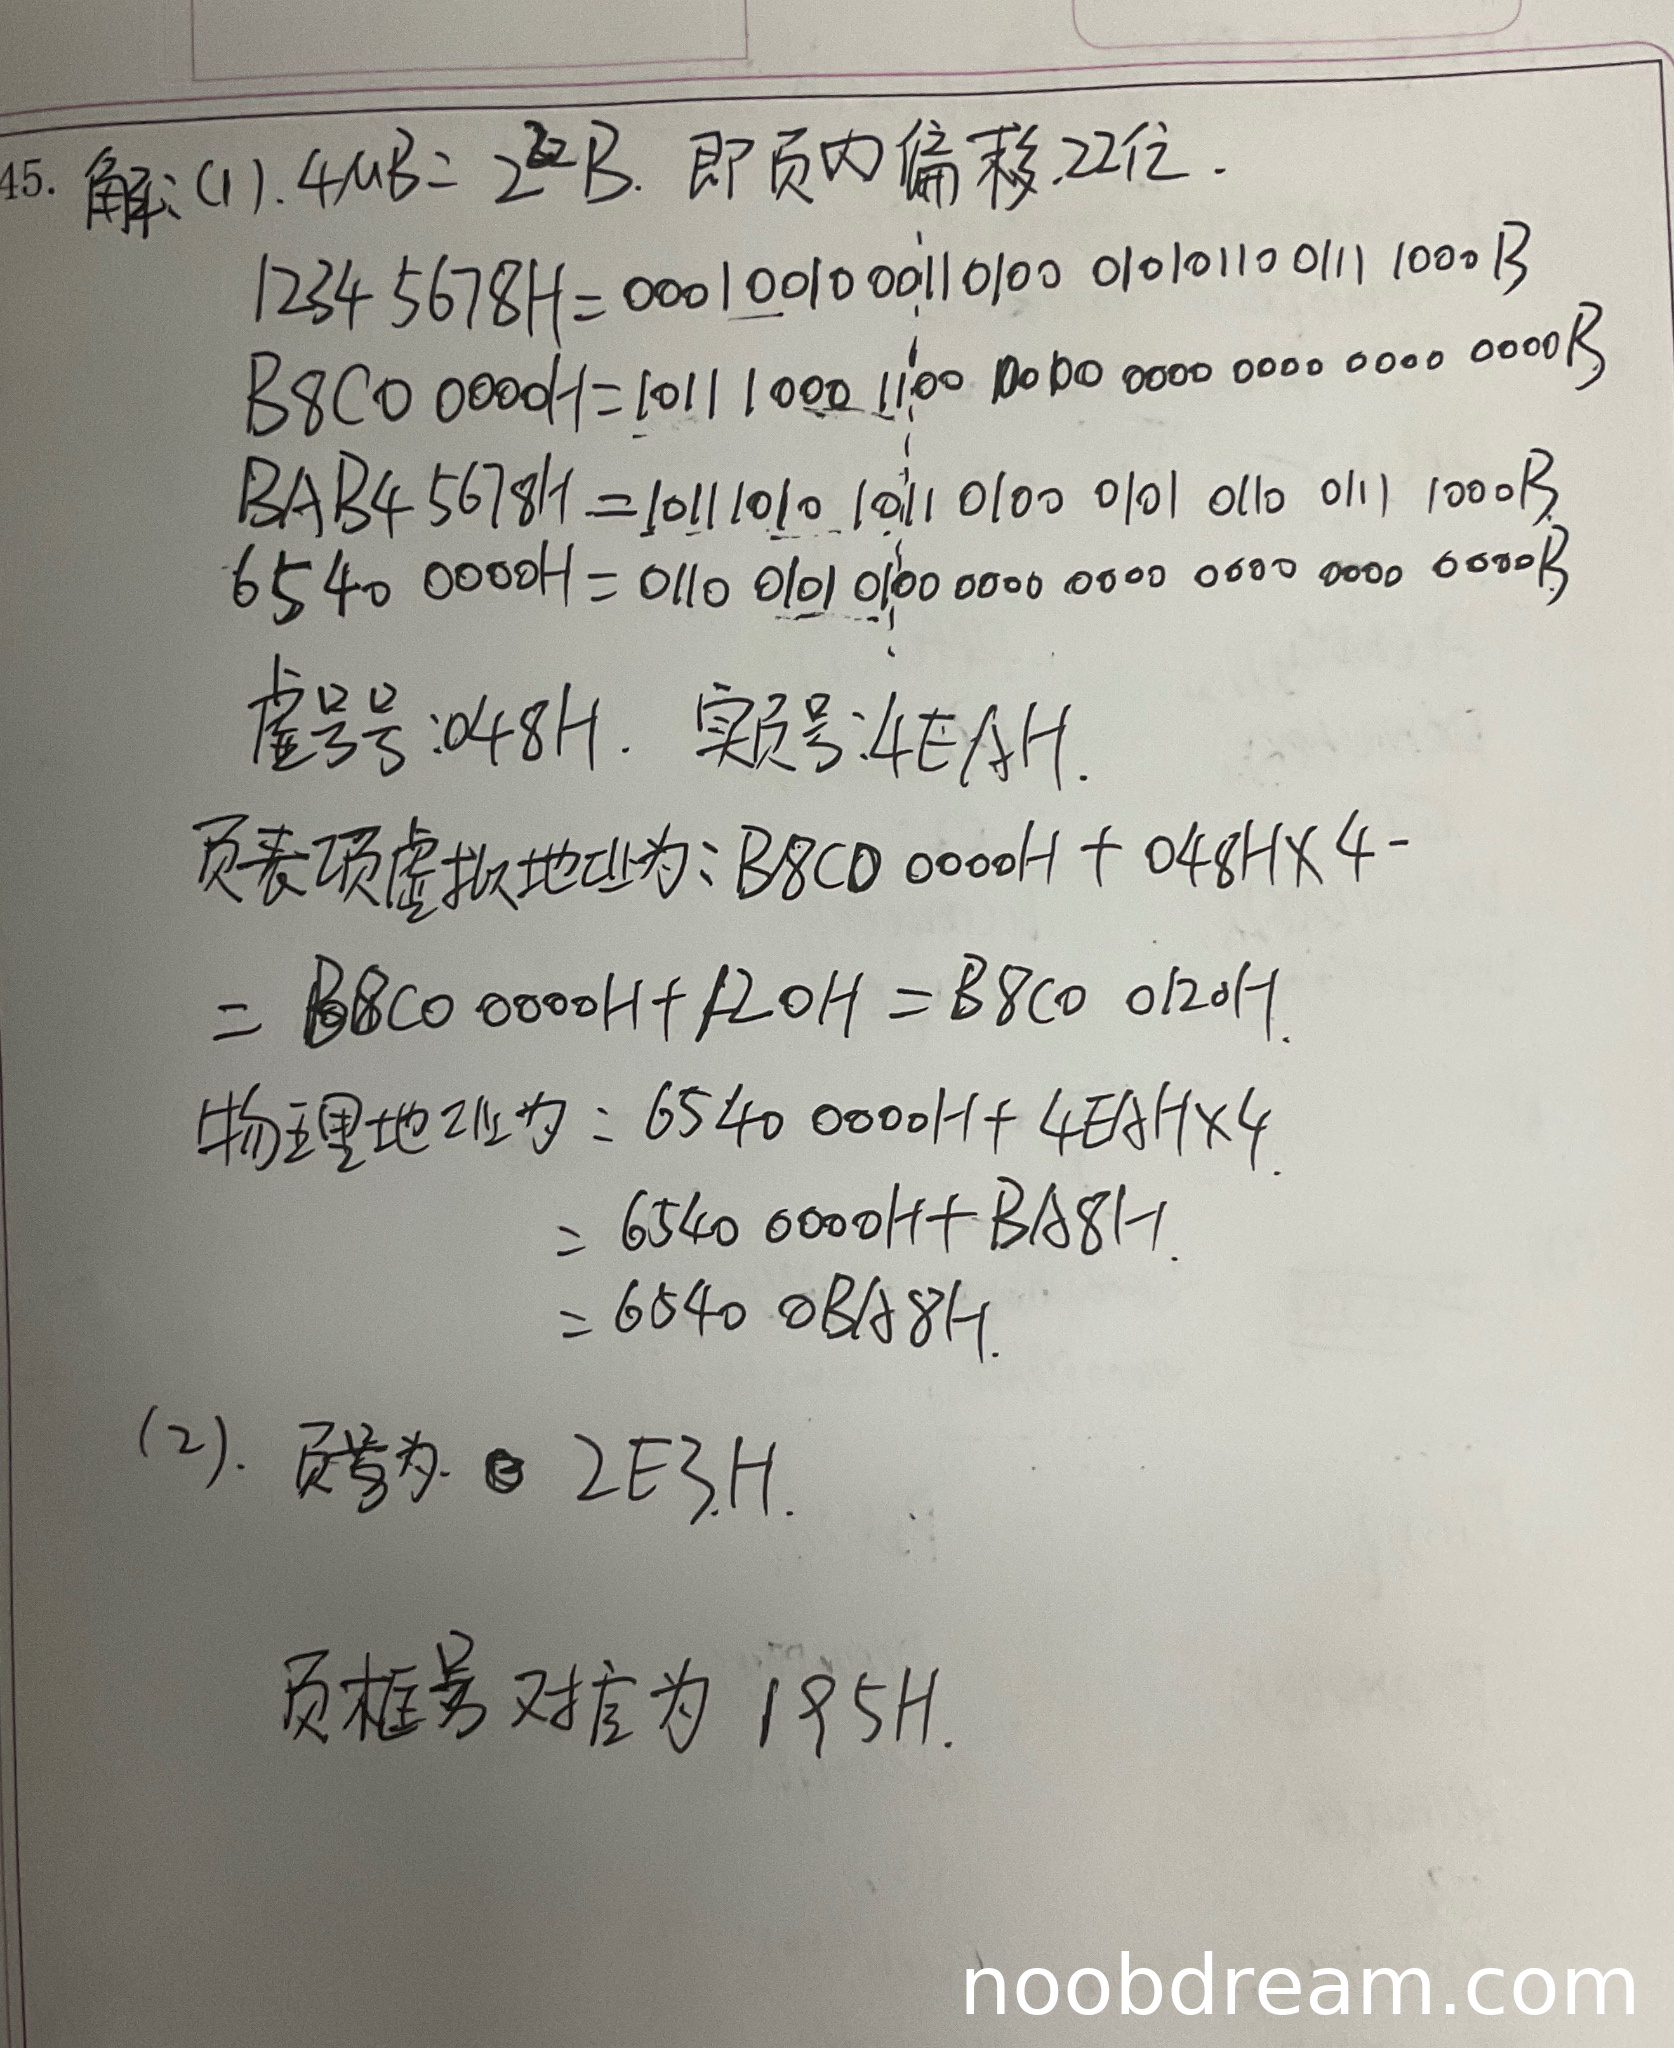 45. 解:(1).4MB=2^22B.即页内偏移22位.
1234 5678H=0001 0010 0011 0100 0101 0110 0111 1000B
B8C0 0000H=1011 1000 1100 0000 0000 0000 0000 0000B
BAB4 5678H=1011 1010 1011 0100 0101 0110 0111 1000B
6540 0000H=0110 0101 0100 0000 0000 0000 0000 0000B
虚号号:048H. 实页号:4EAH.
页表项虚拟地址为:B8C0 0000H+048H×4-
=B8C0 0000H+120H=B8C0 0120H.
物理地址为:6540 0000H+4EAH×4.
=6540 0000H+BA8H.
=6540 0BA8H.
(2). 页号为. 2E3.H.
页框号对应为 195H.
noobdream.com